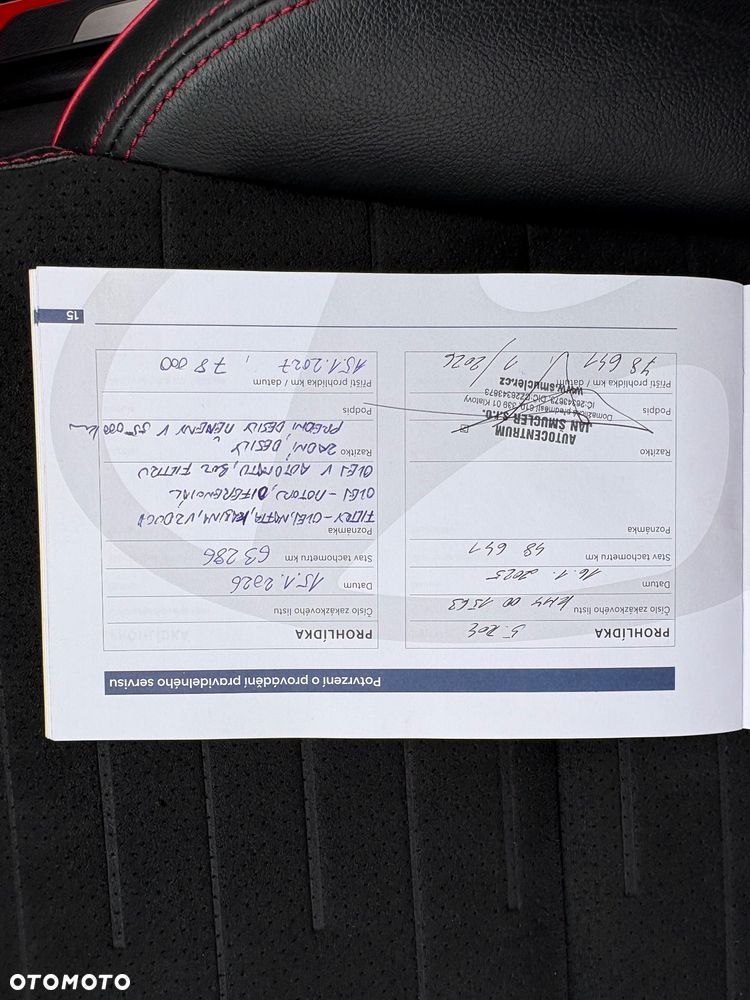 Potvrzení o provádění pravidelného servisu
PROHLÍDKA 5. rok
Číslo zakázkového listu KM4 00 1563
Datum 16. 1. 2025
Stav tachometru km 48 641
Poznámka
Razítko
AUTOCENTRUM
JAN ŠMUCLER S.R.O.
Domažlické předměstí 610, 339 01 Klatovy
IČ:26343673, DIČ: CZ26343673
www.smucler.cz
Podpis
Příští prohlídka km / datum 78 641 1/2026
PROHLÍDKA
Číslo zakázkového listu
Datum 15.1.2026
Stav tachometru km 63 286
Poznámka
FILTRY - OLEJ, NAFTA, KABINA, VZDUCH
OLEJ - MOTOR, DIFERENCIÁL
OLEJ V AUTOMATU, BEZ FILTRU
Razítko
ZADNÍ DESTY
PŘEDNÍ DESKY MĚNĚNY V 55 000 km
Podpis
Příští prohlídka km / datum 15.1.2027, 78 000
15
OTOMOTO